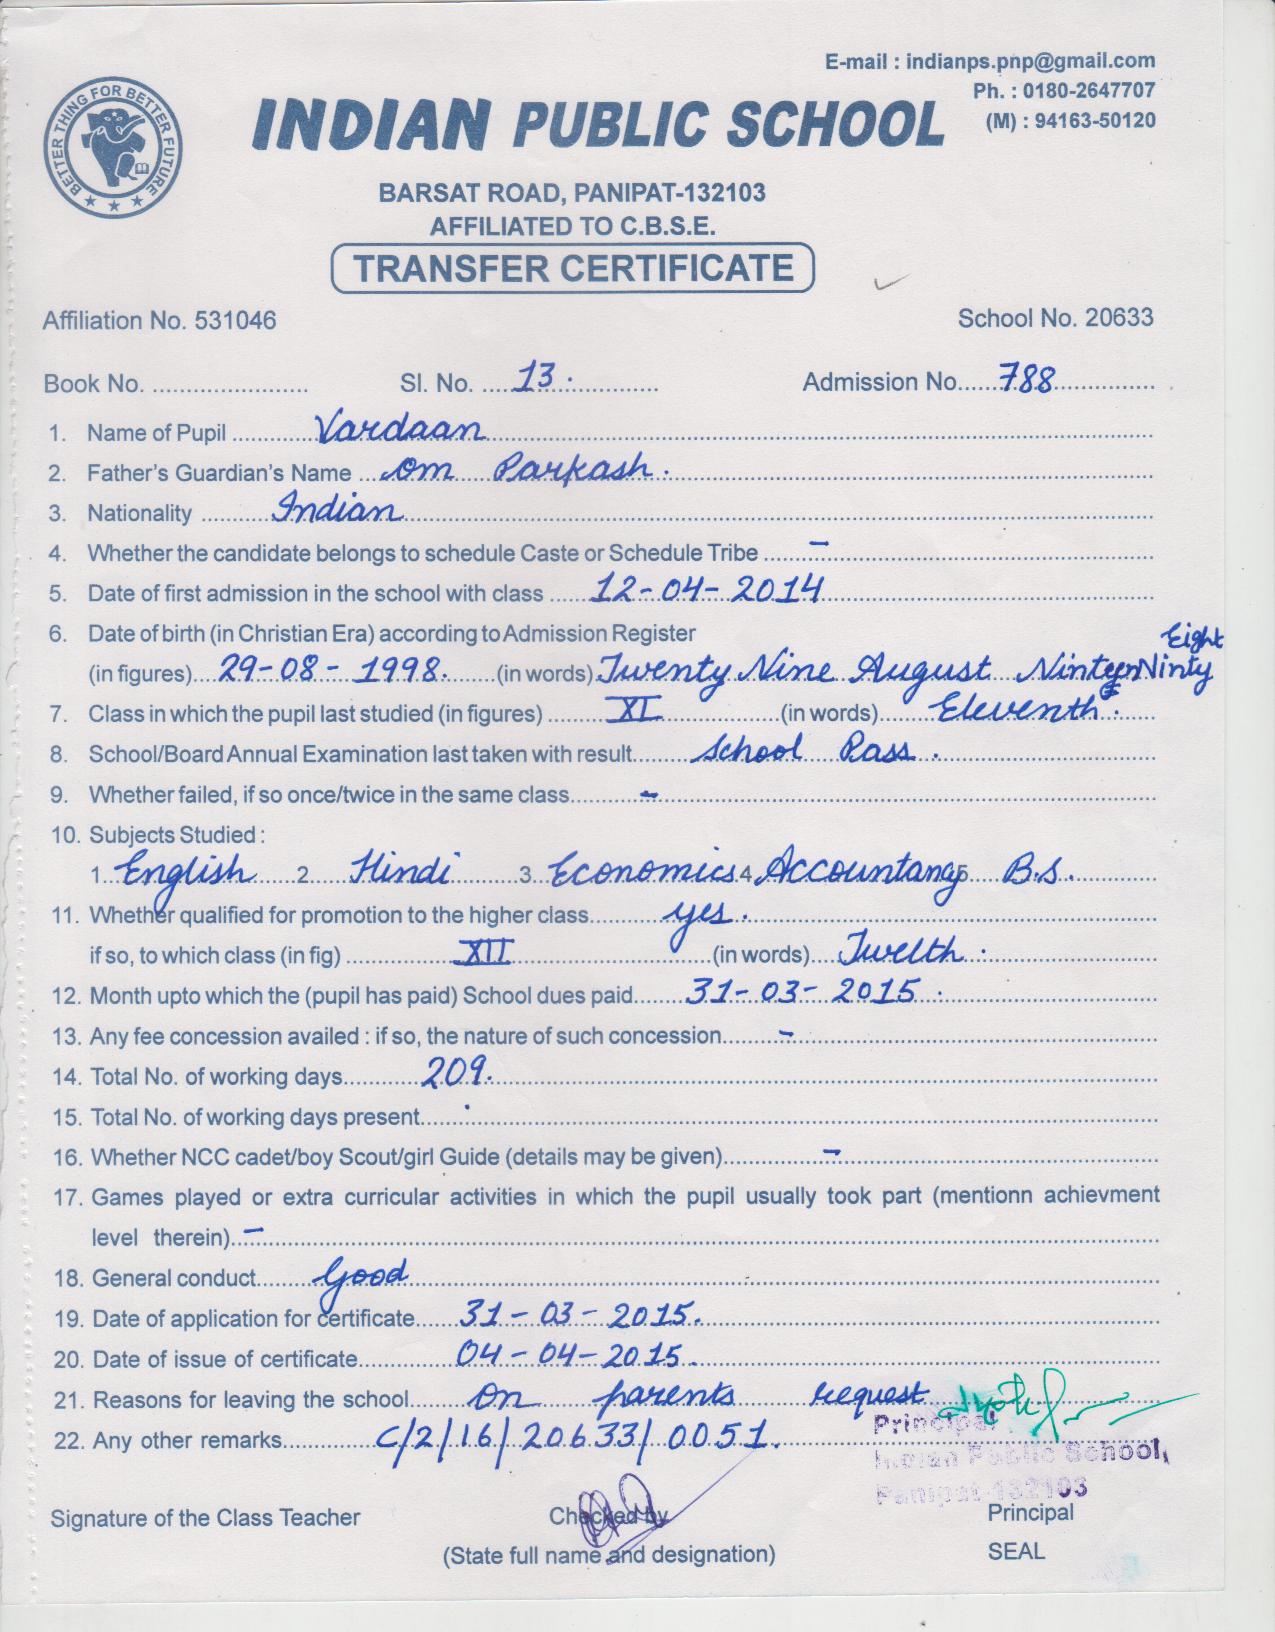 E-mail : indianps.pnp@gmail.com
Ph. : 0180-2647707
(M) : 94163-50120
BETTER THING FOR BETTER FUTURE
INDIAN PUBLIC SCHOOL
BARSAT ROAD, PANIPAT-132103
AFFILIATED TO C.B.S.E.
TRANSFER CERTIFICATE
Affiliation No. 531046 School No. 20633
Book No. Sl. No. 13. Admission No. 788
1. Name of Pupil Vardaan
2. Father's Guardian's Name Om Parkash.
3. Nationality Indian
4. Whether the candidate belongs to schedule Caste or Schedule Tribe –
5. Date of first admission in the school with class 12-04-2014
6. Date of birth (in Christian Era) according to Admission Register
(in figures) 29-08-1998. (in words) Twenty Nine August Ninteen Ninty Eight
7. Class in which the pupil last studied (in figures) XI (in words) Eleventh.
8. School/Board Annual Examination last taken with result School Pass.
9. Whether failed, if so once/twice in the same class –
10. Subjects Studied :
1. English 2. Hindi 3. Economics 4. Accountancy 5. B.S.
11. Whether qualified for promotion to the higher class yes.
if so, to which class (in fig) XII (in words) Twelth.
12. Month upto which the (pupil has paid) School dues paid 31-03-2015.
13. Any fee concession availed : if so, the nature of such concession –
14. Total No. of working days 209.
15. Total No. of working days present
16. Whether NCC cadet/boy Scout/girl Guide (details may be given) –
17. Games played or extra curricular activities in which the pupil usually took part (mentionn achievment
level therein) –
18. General conduct Good
19. Date of application for certificate 31-03-2015.
20. Date of issue of certificate 04-04-2015.
21. Reasons for leaving the school On parents request
22. Any other remarks C/2/16/20633/0051.
Principal
Indian Public School,
Panipat-132103
Signature of the Class Teacher Checked by Principal
(State full name and designation) SEAL